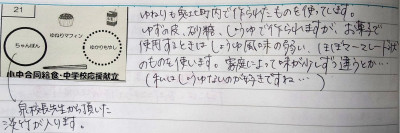 21
ゆねりマフィン
ちゃんぽん
ゆかりをやし
小中合同給食・中学校応援献立
ゆねりも奥江町内で作られたものを使っています。
ゆずの皮、砂糖、しょうゆで作られますが、お菓子で
使用するときはしょうゆ風味の弱い、(ほぼマーマレード状)
のものを使います。家庭によって味が少しずつ違うとか…
(私はしょうゆなしのが好きですね…)
校長先生から頂いた
淡竹が入ります。